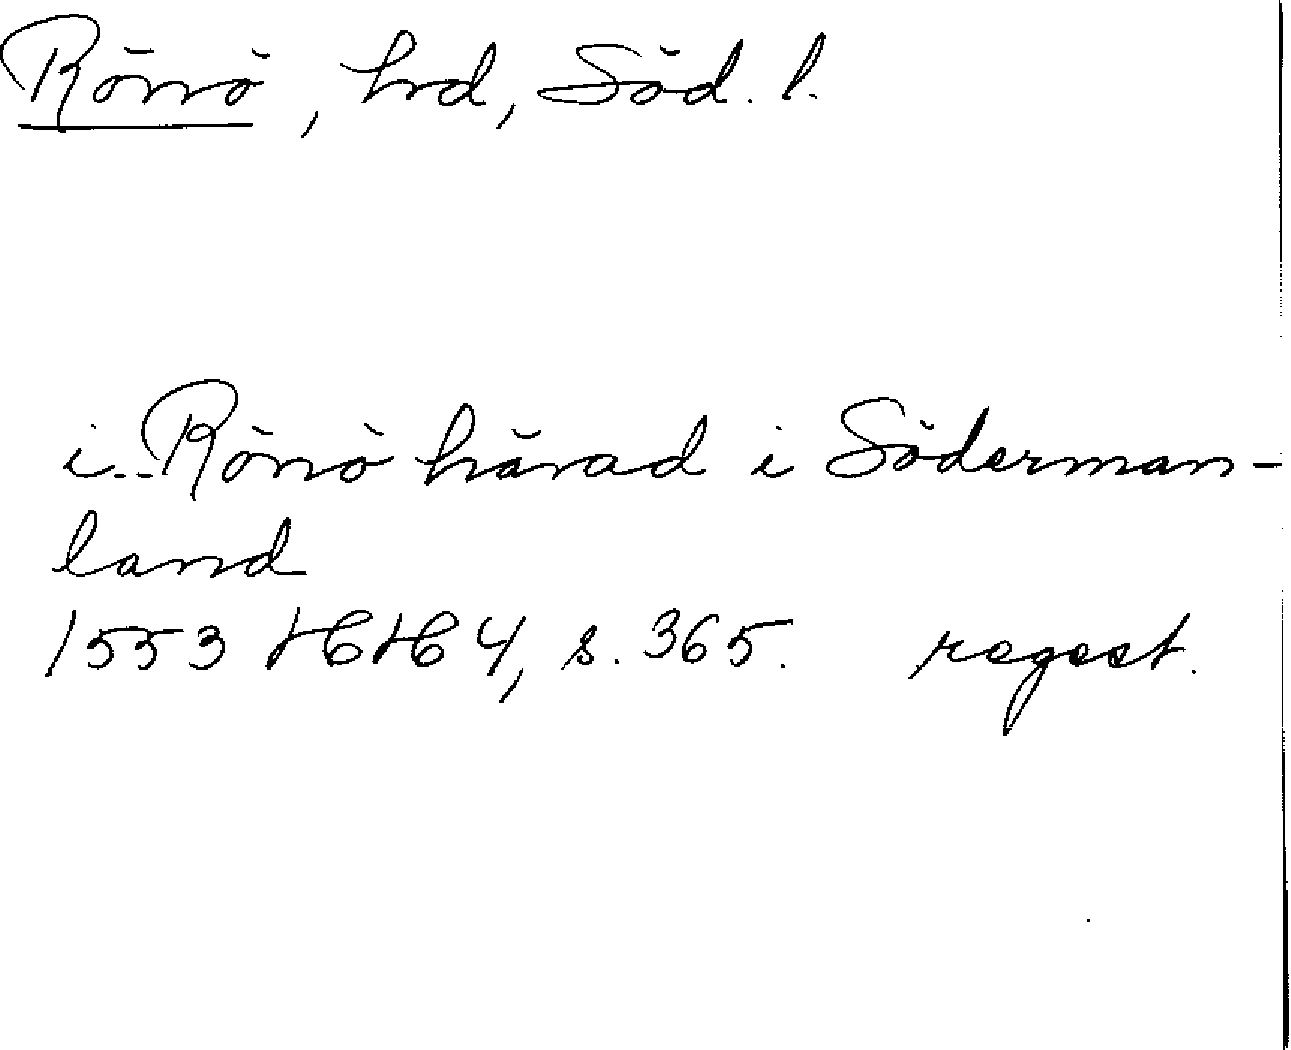 Rönö, hd, Söd. l.
i.. Rönö härad i Söderman-
land
1553 HH 4, s. 365. regest.